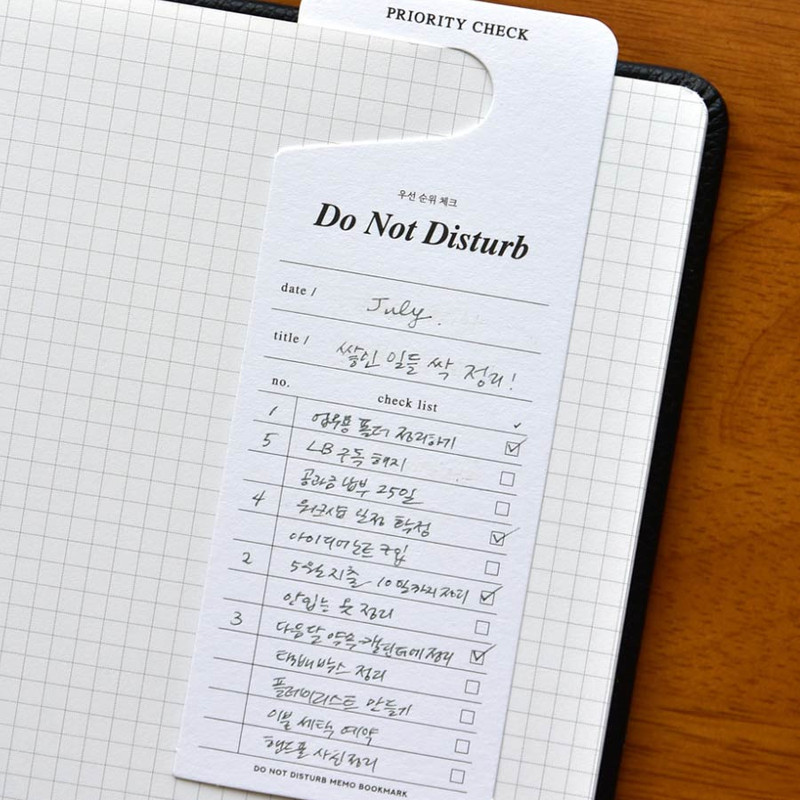 PRIORITY CHECK
우선 순위 체크
Do Not Disturb
date / July.
title / 쌓인 일들 싹 정리!
no. check list ✓
1 업무용 폴더 정리하기 ☑
5 LB 구독 해지 ☐
공과금 납부 25일 ☐
4 워크샵 일정 확정 ☑
아이디어노트 구입 ☐
2 5월 지출 10일까지 정리 ☑
안입는 옷 정리 ☐
3 다음달 약속 캘린더에 정리 ☑
택배박스 정리 ☐
플레이리스트 만들기 ☐
이불 세탁 예약 ☐
핸드폰 사진정리 ☐
DO NOT DISTURB MEMO BOOKMARK